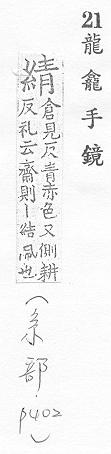 21龍龕手鏡
綪倉見反青赤色又側耕
反礼云齋則丨結佩也
（糸部．p402）